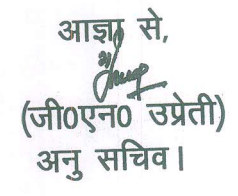 आज्ञा से,
(जी0एन0 उप्रेती)
अनु सचिव।